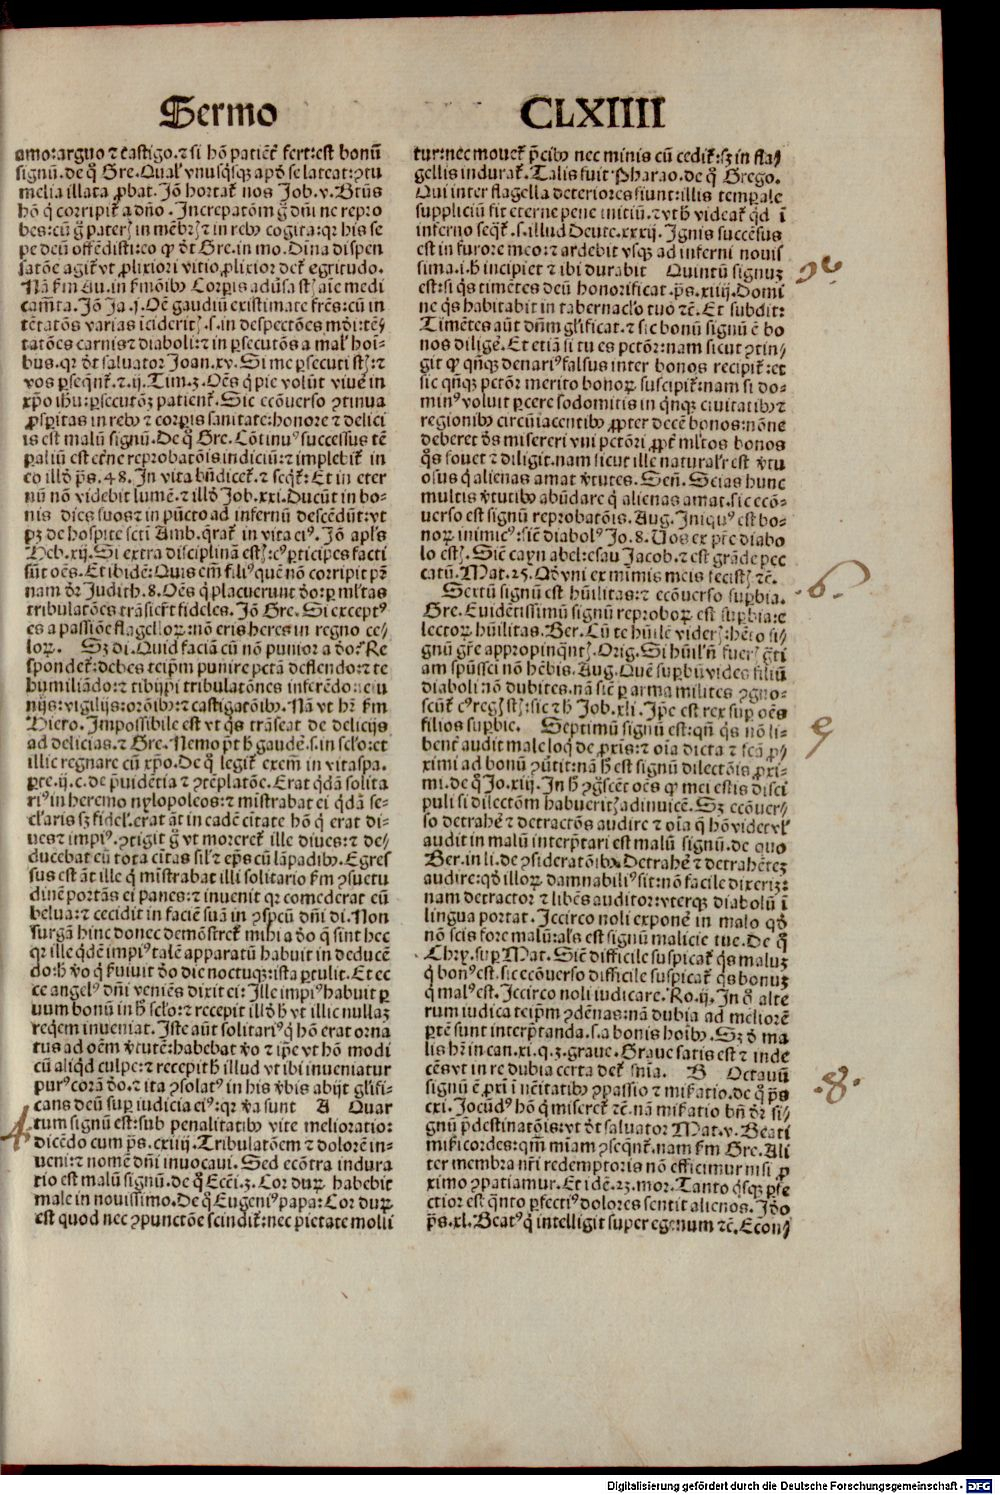 Sermo
CLXIIII
amo: arguo ⁊ castigo. ⁊ si hō patiēt᷑ fert: est bonū
signū. de q̊ Gre. Qual' vnusq̄sq̢ apd̄ se lateat: ꝯtu
melia illata ꝓbat. Jō hortat᷑ nos Job. v. Btūs
hō q̇ corripit᷑ a dn̄o. Increpatōm g̊ dn̄i ne repro
bes: cū g̊ pateris in mēbris ⁊ in reb⁹ cogita: qr his se
pe deū offēdisti: eo ꝙ dt̄ Gre. in mo. Diuina dispen
satōe agit᷑ vt ꝓlixiori vitio ꝓlixior det᷑ egritudo.
Nā ẜm Au. in ẜmōib⁹ Corpis aduersa st̄ aīe medi
camēta. Jō Ja. j. Oē gaudiū existimate frēs: cū in
tētatōs varias īcideritis. s. in despectōes mūdi: tē⸗
tatōes carnis ⁊ diaboli: ⁊ in ꝑsecutōs a mal' hoī⸗
bus. qr dt̄ saluator Joan. xv. Si me ꝑsecuti st̄: ⁊
vos ꝑseqn̄t᷑. ⁊. ij. Tim. 3. Oēs q̇ pie volūt viuē in
xp̄o ihū: ꝑsecutōꝫ patient᷑. Sic ecōuerso ꝯtinua
ꝓsꝑitas in reb⁹ ⁊ corꝑis sanitate: honore ⁊ delici
is est malū signū. De q̊ Gre. Cōtinu⁹ successus tē
ꝑaliū est eterne reprobatōis indiciū: ⁊ implebit᷑ in
eo illd̄ ps. 48. In vita bn̄dicet᷑. ⁊ seqt᷑: Et in eter
nū nō videbit lumē. ⁊ illd̄ Job. xxi. Ducūt in bo⸗
nis dies suos ⁊ in pūcto ad infernū descēdūt: vt
pꝫ de hospite scti Amb. q̄rat᷑ in vita ei⁹. Jō apl's
Heb. xij. Si extra disciplinā estis: c⁹ ꝑticipes facti
sūt oēs. Et ibidē: Quis em̄ fili⁹ quē nō corripit pr̄
nam dr̄ Judith. 8. Oēs q̇ placuerunt dō: ꝑ ml̄tas
tribulatōes trāsierūt fideles. Jō Gre. Si except⁹
es a passiōe flagelloꝝ: nō eris heres in regno ce⸗
loꝝ. Sꝫ di. Quid faciā cū nō punior a dō? Re
spondet᷑: debes teipm̄ punire pctā deflendo: ⁊ te
humiliādo: ⁊ tibijpi tribulatōnes inferēdo: ieiu
nijs: vigilijs: orōib⁹: ⁊ castigatōib⁹. Nā vt hr̄ ẜm
Hiero. Impossibile est vt q̇s trāseat de delicijs
ad delicias. ⁊ Gre. Nemo pt̄ h̄ gaudē. s. in seclo: et
illic regnare cū xp̄o. De q̊ legit᷑ exem̄ in vitaspa.
ꝑte. ij. c. de ꝓuidētia ⁊ ꝯtēplatōe. Erat q̇dā solita
ri⁹ in heremo nylopoleos: ⁊ mistrabat ei q̇dā se⸗
cl'aris sꝫ fidel'. erat āt in eadē citate hō q̇ erat di⸗
ues ⁊ impi⁹. ꝯtigit g̊ vt moreret᷑ ille diues: ⁊ de⸗
ducebat eū tota ciuitas sil' ⁊ eps̄ cū lāpadib⁹. Egres
sus est āt ille q̇ mīstrabat illi solitario ẜm ꝯsuetu
dinē portās ei panes: ⁊ inuenit qr comederat eū
belua: ⁊ cecidit in faciē suā in ꝯspcū dn̄i di. Non
surgā hinc donec demōstret᷑ mihi a dō q̇ sint hec
qr ille q̇dē impi⁹ talē apparatū habuit in deducē
do: h̄ vo q̇ ẜuiuit dō die noctuq̢: ista ꝑtulit. Et ec
ce angel⁹ dn̄i veniēs dixit ei: Ille impi⁹ habuit ꝑ
uum bonū in h̄ sclo: ⁊ recepit illd̄ h̄ vt illic nullaꝫ
reqem inueniat. Iste aūt solitari⁹ q̇ hō erat orna
tus ad oēm v̄tutē: habebat vo ⁊ ipe vt hō modi
cū aliqd culpe: ⁊ recepit h̄ illud vt ibi inueniatur
pur⁹ corā dō. ⁊ ita ꝯsolat⁹ in his v̄bis abijt gl'ifi⸗
cans deū suꝑ iudicia ei⁹: qr v̄a sunt A Quar
tum signū est: sub penalitatib⁹ vite melioratio:
dicēdo cum ps. cxiiij. Tribulatōem ⁊ dolorē in⸗
ueni: ⁊ nomē dn̄i inuocaui. Sed ecōtra indura
tio est malū signū. de q̊ Ecci. 3. Cor duꝝ habebit
male in nouissimo. De q̊ Eugeni⁹ papa: Cor duꝝ
est quod nec ꝯpunctōe scindit᷑: nec pietate molli
tur: nec mouet᷑ p̄cib⁹ nec minis cū cedit᷑: sꝫ in fla⸗
gellis indurat᷑. Talis fuit Pharao. de q̊ Grego.
Qui inter flagella deteriores fiunt: illis temꝑale
suppliciū fit eterne pene initiū. ⁊ vt h̄ videat᷑ qd̄ ī
inferno seqt᷑. s. illud Deute. xxxij. Ignis succēsus
est in furore meo: ⁊ ardebit vsq̢ ad inferni nouis
sima. i. h̄ incipiet ⁊ ibi durabit Quintū signuꝫ
est: si q̇s timētes deū honorificat. ps. xiiij. Domi
ne q̇s habitabit in tabernaclo tuo ⁊c. Et subdit:
Timētes aūt dn̄m gl'ificat. ⁊ sic bonū signū ē bo
nos diligē. Et etiā si tu es pctōr: nam sicut ꝯtin⸗
git ꝙ qn̄q̢ denari⁹ falsus inter bonos recipit᷑: et
sic qn̄q̢ pctōr merito bonoꝝ suscipit᷑: nam si do⸗
min⁹ voluit ꝑcere sodomitis in q̇nq̢ ciuitatib⁹ ⁊
regionib⁹ circūiacentib⁹ ꝓpter decē bonos: nōne
deberet ds̄ misereri vni pctōri ꝓpt᷑ ml̄tos bonos
q̇s fouet ⁊ diligit. nam sicut ille naturalr est v̄tu
osus q̇ alienas amat v̄tutes. Sen̄. Scias hunc
multis v̄tutib⁹ abūdare q̇ alienas amat. sic ecō⸗
uerso est signū reprobatōis. Aug. Iniqu⁹ est bo⸗
noꝝ inimic⁹: sic diabol⁹ Jo. 8. Vos ex pr̄e diabo
lo estis. Sic cayn abel: esau Jacob. ⁊ est grāde pec
catū. Mat. 25. Qd̄ vni ex minimis meis fecistis ⁊c.
Sextū signū est hūilitas: ⁊ ecōuerso suꝑbia.
Gre. Euidētissimū signū reproboꝝ est suꝑbia: e
lectoꝝ hūilitas. Ber. Cū te hūilē videris: hēto si⸗
gnū gre appropinq̄ntis. Orig. Si hūil' nō fueris gr̄ti
am spūssci nō hēbis. Aug. Quē suꝑbū vides filiū
diaboli nō dubites. nā sic ꝑ arma milites ꝯgno⸗
scūt᷑ c⁹ regis st̄: sic ⁊ h̄ Job. xli. Ipe est rex suꝑ oēs
filios suꝑbie. Septimū signū est: qn̄ q̇s nō li⸗
bent᷑ audit male loq̇ de ꝓxīs: ⁊ oīa dicta ⁊ fcā ꝓ⸗
ximi ad bonū ꝯuertit: nā h̄ est signū dilectōis ꝓxi⸗
mi. de q̊ Jo. xiij. In h̄ ꝯgscēt oēs ꝙ mei estis disci
puli si dilectōm habueritis adinuicē. Sꝫ ecōuer⸗
so detrahē ⁊ detractōes audire ⁊ oīa q̇ hō videt vl'
audit in malū interpr̄tari est malū signū. de quo
Ber. in li. de ꝯsideratōib⁹. Detrahē ⁊ detrahētes
audire: qd̄ illoꝝ damnabili⁹ sit: nō facile dixerim:
nam detractor ⁊ libēs auditor: vterq̢ diabolū ī
lingua portat. Iccirco noli exponē in malo qd̄
nō scis fore malū: als est signū malicie tue. De q̊
Chry. suꝑ Mat. Sic difficile suspicat᷑ q̇s maluꝫ
q̇ bon⁹ est. sic ecōuerso difficile suspicat᷑ q̇s bonuꝫ
q̇ mal⁹ est. Iccirco noli iudicare. Ro. ij. In q̊ alte
rum iudica teipm̄ ꝯdēnas: nā dubia ad meliorē
ꝑtē sunt interpr̄tanda. s. a bonis hoīb⁹. Sꝫ d̄ ma
lis hr̄ in can. xi. q. 3. graue. Graue satis est ⁊ inde
cēs vt in re dubia certa det᷑ snīa. B Octauū
signū ē ꝓxī ī nccītatib⁹ ꝯpassio ⁊ miẜatio. de q̊ ps
cxi. Jocūd⁹ hō q̇ miseret᷑ ⁊c. nā miẜatio bn̄ dr̄ si⸗
gnū p̄destinatōis: vt dt̄ saluator Mat. v. Beati
miẜicordes: qm̄ miam ꝯseqn̄t᷑. nam ẜm Gre. Ali
ter membra nr̄i redemptoris nō efficimur nisi ꝓ
ximo ꝯpatiamur. Et idē. 23. mor. Tanto q̇sq̢ ꝑfe
ctior est q̄nto ꝑfecti⁹ dolores sentit alienos. Jō
ps. xl. Beat⁹ q̇ intelligit super egenum ⁊c. Econ⸗
4
6.
8.
Digitalisierung gefördert durch die Deutsche Forschungsgemeinschaft - DFG